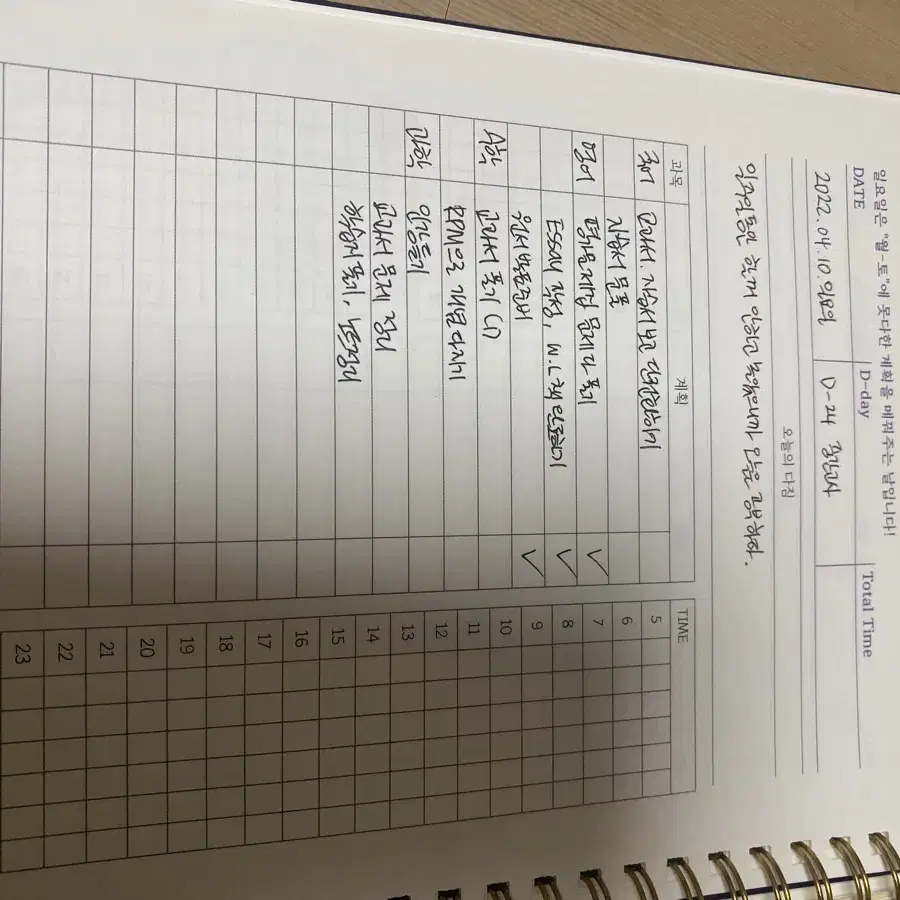 일요일은 "월-토"에 못다한 계획을 메꿔주는 날입니다!
DATE D-day Total Time
2022.04.10.일요일 D-24 중간고사
오늘의 다짐
일주일동안 한거 안하고 놀았으니까 인은 공부하자.
과목 계획 TIME
국어 교과서, 자습서 보고
자습서 문풀
영어 평가문제집 문제 다 풀기 ✓
Essay 작성, W.L 책 만들기 ✓
영서 발표준비 ✓
수학 교과서 풀기 (1)
RPM으로 개념 다지기
과학 인강듣기
교과서 문제 정리
학습지 풀기, 노트정리
5
6
7
8
9
10
11
12
13
14
15
16
17
18
19
20
21
22
23